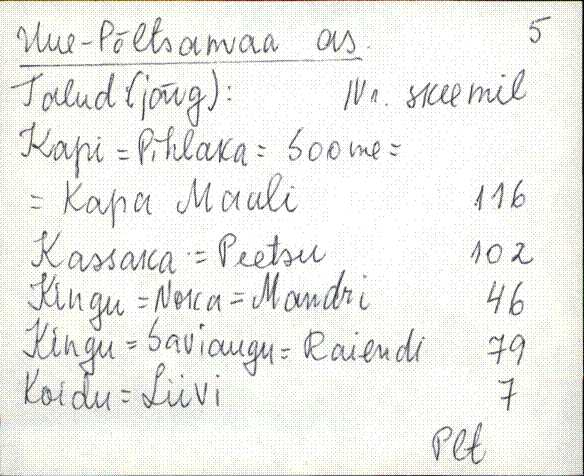 Uue-Põltsamaa as. 5
Talud (järg): Nr. skeemil
Kapi = Pihlaka = Soome =
= Kapa Mauli 116
Kassaka = Peetsu 102
Kingu = Noka = Mandri 46
Kingu = Saviaugu = Raiendi 79
Koidu = Liivi 7
Plt